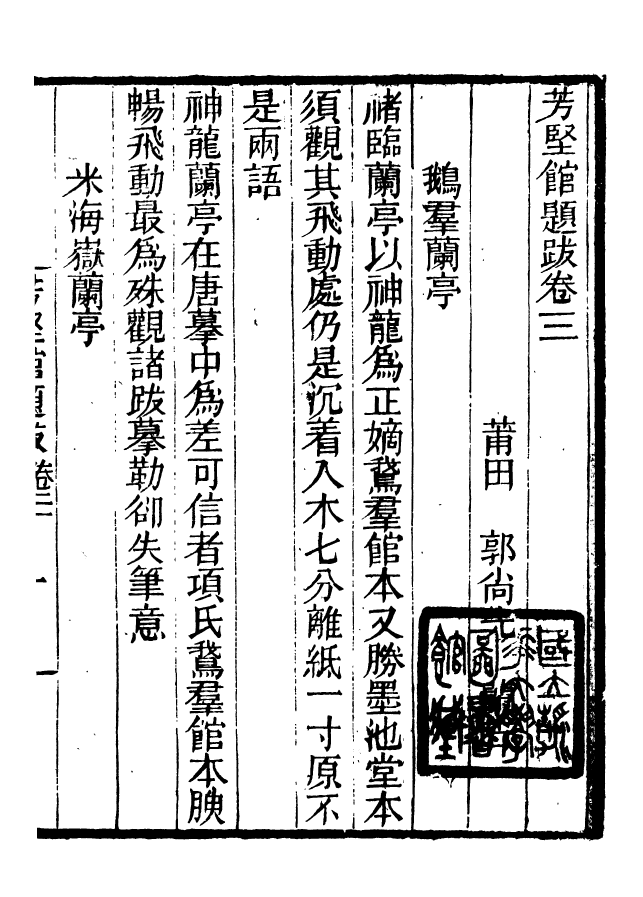 芳堅館題跋卷三
莆田 郭尚先
鵝羣蘭亭
褚臨蘭亭以神龍爲正嫡鵞羣館本又勝墨池堂本
須觀其飛動處仍是沉着入木七分離紙一寸原不
是兩語
神龍蘭亭在唐摹中爲差可信者項氏鵞羣館本腴
暢飛動最爲殊觀諸跋摹勒卻失筆意
米海嶽蘭亭
芳堅館題跋卷三 一